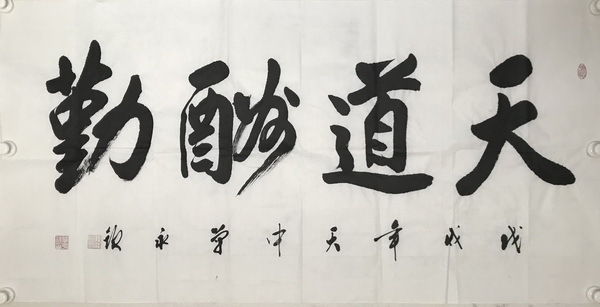 天道酬勤
戊戌年天中单永钦